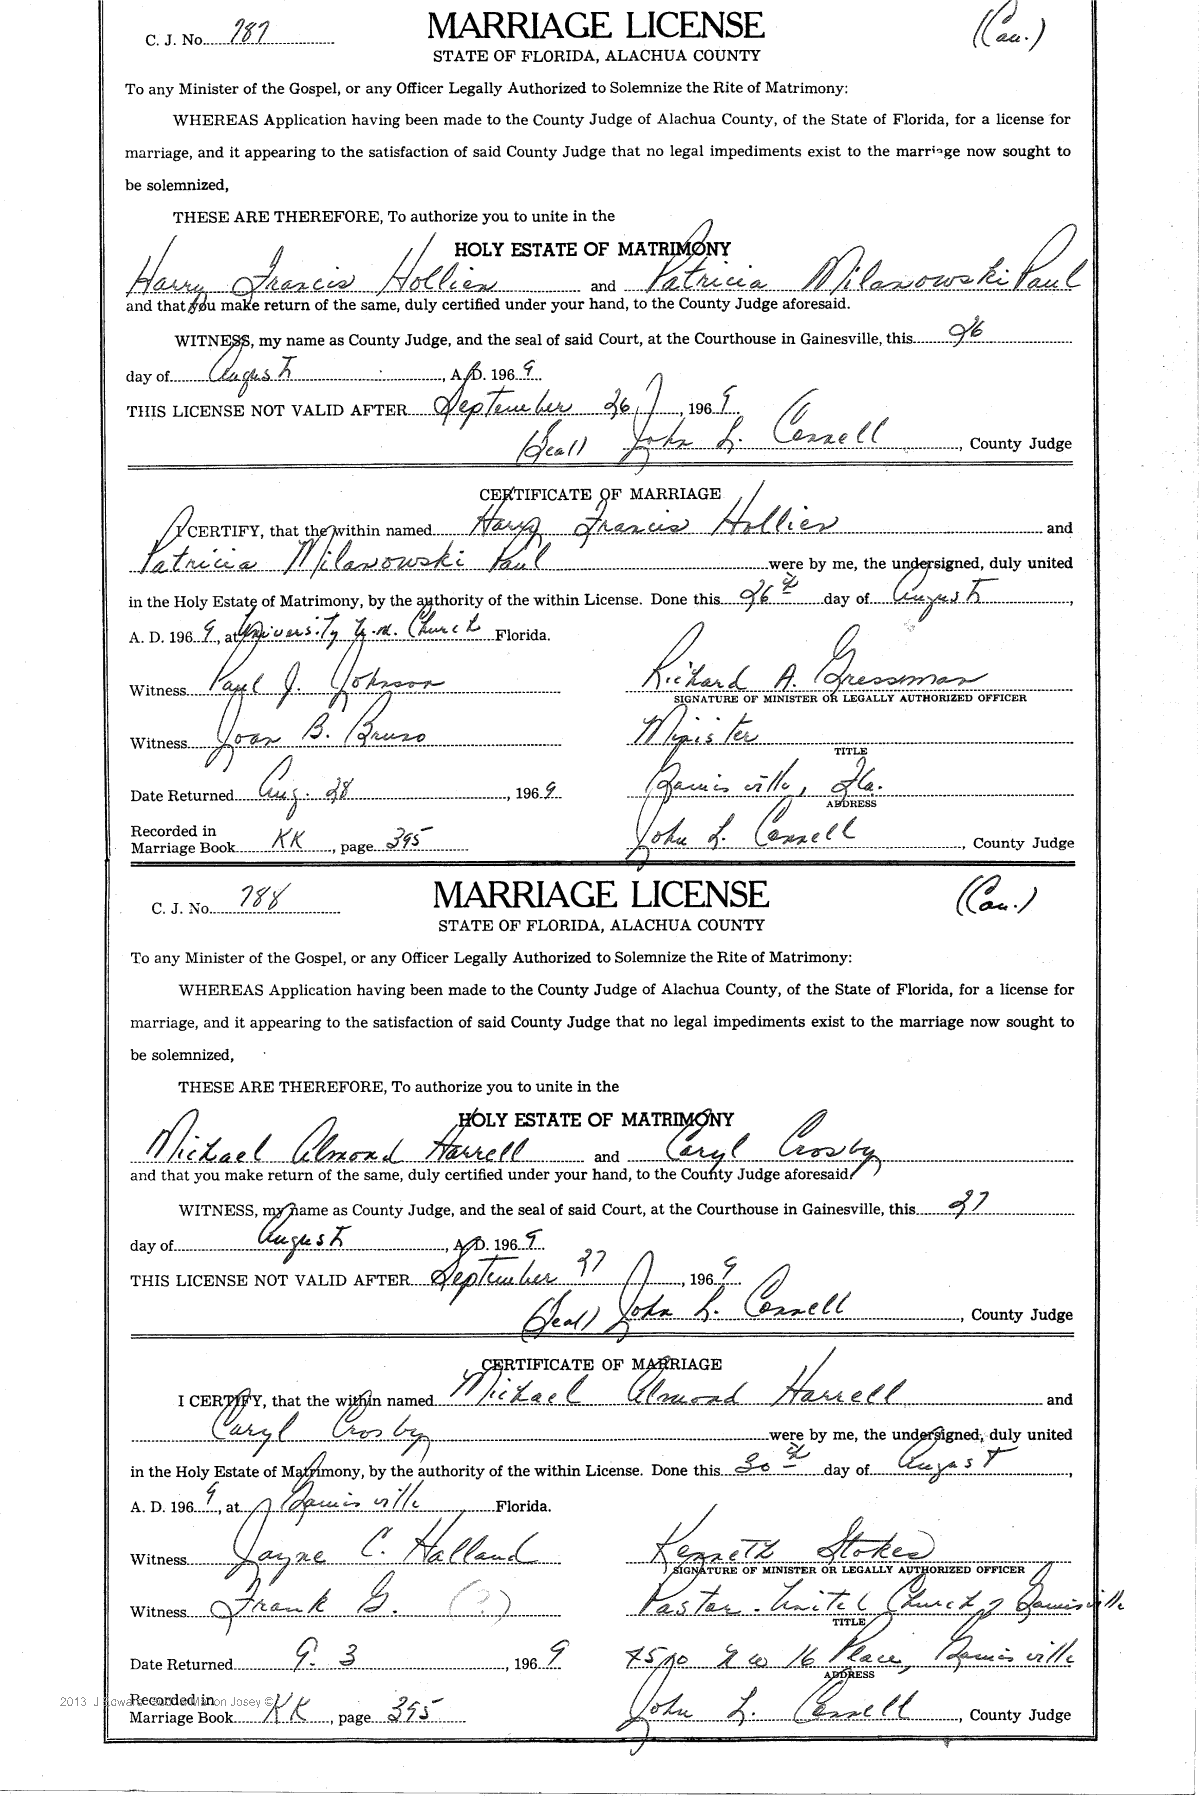 C. J. No. 787 MARRIAGE LICENSE (Cau.)
STATE OF FLORIDA, ALACHUA COUNTY
To any Minister of the Gospel, or any Officer Legally Authorized to Solemnize the Rite of Matrimony:
WHEREAS Application having been made to the County Judge of Alachua County, of the State of Florida, for a license for
marriage, and it appearing to the satisfaction of said County Judge that no legal impediments exist to the marriage now sought to
be solemnized,
THESE ARE THEREFORE, To authorize you to unite in the
HOLY ESTATE OF MATRIMONY
Harry Francis Hollien and Patricia Milanowski Paul
and that you make return of the same, duly certified under your hand, to the County Judge aforesaid.
WITNESS, my name as County Judge, and the seal of said Court, at the Courthouse in Gainesville, this 26
day of August, A. D. 1969
THIS LICENSE NOT VALID AFTER September 26, 1969
(Seal) John L. Connell, County Judge
CERTIFICATE OF MARRIAGE
I CERTIFY, that the within named Harry Francis Hollien and
Patricia Milanowski Paul were by me, the undersigned, duly united
in the Holy Estate of Matrimony, by the authority of the within License. Done this 26th day of August,
A. D. 1969, at University Church Florida.
Witness Paul J. Johnson Richard A. Gressman
SIGNATURE OF MINISTER OR LEGALLY AUTHORIZED OFFICER
Witness Joan B. Bruno Minister
TITLE
Date Returned Aug. 28, 1969 Gainesville, Fla.
ADDRESS
Recorded in
Marriage Book KK, page 395 John L. Connell, County Judge
C. J. No. 788 MARRIAGE LICENSE (Cau.)
STATE OF FLORIDA, ALACHUA COUNTY
To any Minister of the Gospel, or any Officer Legally Authorized to Solemnize the Rite of Matrimony:
WHEREAS Application having been made to the County Judge of Alachua County, of the State of Florida, for a license for
marriage, and it appearing to the satisfaction of said County Judge that no legal impediments exist to the marriage now sought to
be solemnized,
THESE ARE THEREFORE, To authorize you to unite in the
HOLY ESTATE OF MATRIMONY
Michael Almond Harrell and Caryl Crosby
and that you make return of the same, duly certified under your hand, to the County Judge aforesaid.
WITNESS, my name as County Judge, and the seal of said Court, at the Courthouse in Gainesville, this 27
day of August, A. D. 1969
THIS LICENSE NOT VALID AFTER September 27, 1969
(Seal) John L. Connell, County Judge
CERTIFICATE OF MARRIAGE
I CERTIFY, that the within named Michael Almond Harrell and
Caryl Crosby were by me, the undersigned, duly united
in the Holy Estate of Matrimony, by the authority of the within License. Done this 30th day of August,
A. D. 1969, at Gainesville Florida.
Witness Jayne C. Halland Kenneth Stokes
SIGNATURE OF MINISTER OR LEGALLY AUTHORIZED OFFICER
Witness Frank G. (?) Pastor - United Church of Gainesville
TITLE
Date Returned 9. 3, 1969 NW 16 Place, Gainesville
ADDRESS
Recorded in
2013 Josey ©
Marriage Book KK, page 395 John L. Connell, County Judge